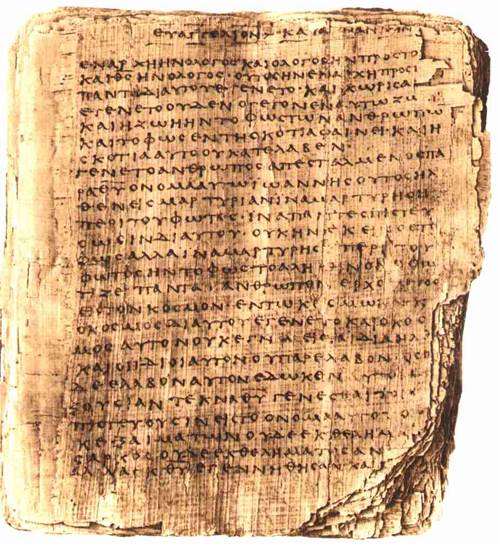 ΕΥΑΓΓΕΛΙΟΝ ΚΑΤΑ
ΕΝ ΑΡΧΗ ΗΝ Ο ΛΟΓΟϹ ΚΑΙ Ο ΛΟΓΟϹ ΗΝ ΠΡΟϹ ΤΟ
ΚΑΙ ΘϹ ΗΝ Ο ΛΟΓΟϹ ΟΥΤΟϹ ΗΝ ΕΝ ΑΡΧΗ ΠΡΟϹ
ΠΑΝΤΑ ΔΙ ΑΥΤΟΥ ΕΓΕΝΕΤΟ ΚΑΙ ΧΩΡΙϹ Α
ΕΓΕΝΕΤΟ ΟΥΔΕΝ Ο ΓΕΓΟΝΕΝ ΑΥΤΩ ΖΩ
ΚΑΙ Η ΖΩΗ ΗΝ ΤΟ ΦΩϹ ΤΩΝ ΑΝΘΡΩΠΩ
ΚΑΙ ΤΟ ΦΩϹ ΕΝ ΤΗ ϹΚΟΤΙΑ ΦΑΙΝΕΙ ΚΑΙ Η
ϹΚΟΤΙΑ ΑΥΤΟ ΟΥ ΚΑΤΕΛΑΒΕΝ
ΕΓΕΝΕΤΟ ΑΝΘΡΩΠΟϹ ΑΠΕϹΤΑΛΜΕΝΟϹ ΠΑ
ΡΑ ΘΥ ΟΝΟΜΑ ΑΥΤΩ ΙΩΑΝΝΗϹ ΟΥΤΟϹ ΗΛ
ΘΕΝ ΕΙϹ ΜΑΡΤΥΡΙΑΝ ΙΝΑ ΜΑΡΤΥΡΗϹΗ
ΠΕΡΙ ΤΟΥ ΦΩΤΟϹ ΙΝΑ ΠΑΝΤΕϹ ΠΙϹΤΕΥ
ϹΩϹΙΝ ΔΙ ΑΥΤΟΥ ΟΥΚ ΗΝ ΕΚΕΙΝΟϹ ΤΟ
ΦΩϹ ΑΛΛΑ ΙΝΑ ΜΑΡΤΥΡΗϹΗ ΠΕΡΙ ΤΟΥ
ΦΩΤΟϹ ΗΝ ΤΟ ΦΩϹ ΤΟ ΑΛΗΘΙΝΟΝ Ο ΦΩ
ΤΙΖΕΙ ΠΑΝΤΑ ΑΝΘΡΩΠΟΝ ΕΡΧΟΜΕΝΟΝ
ΕΙϹ ΤΟΝ ΚΟϹΜΟΝ ΕΝ ΤΩ ΚΟϹΜΩ ΗΝ
Ο ΚΟϹΜΟϹ ΔΙ ΑΥΤΟΥ ΕΓΕΝΕΤΟ ΚΑΙ Ο ΚΟϹ
ΜΟϹ ΑΥΤΟΝ ΟΥΚ ΕΓΝΩ ΕΙϹ ΤΑ ΙΔΙΑ ΗΛΘΕ
ΚΑΙ ΟΙ ΙΔΙΟΙ ΑΥΤΟΝ ΟΥ ΠΑΡΕΛΑΒΟΝ ΟϹΟΙ
ΔΕ ΕΛΑΒΟΝ ΑΥΤΟΝ ΕΔΩΚΕΝ
ΞΟΥϹΙΑΝ ΤΕΚΝΑ ΘΥ ΓΕΝΕϹΘΑΙ
ΠΙϹΤΕΥΟΥϹΙΝ ΕΙϹ ΤΟ ΟΝΟΜΑ ΑΥΤΟΥ
ΟΥΚ ΕΞ ΑΙΜΑΤΩΝ ΟΥΔΕ ΕΚ ΘΕΛΗΜΑ
ϹΑΡΚΟϹ ΟΥΔΕ ΕΚ ΘΕΛΗΜΑΤΟϹ ΑΝ
ΑΛΛΑ ΕΚ ΘΥ ΕΓΕΝΝΗΘΗϹΑΝ ΚΑΙ